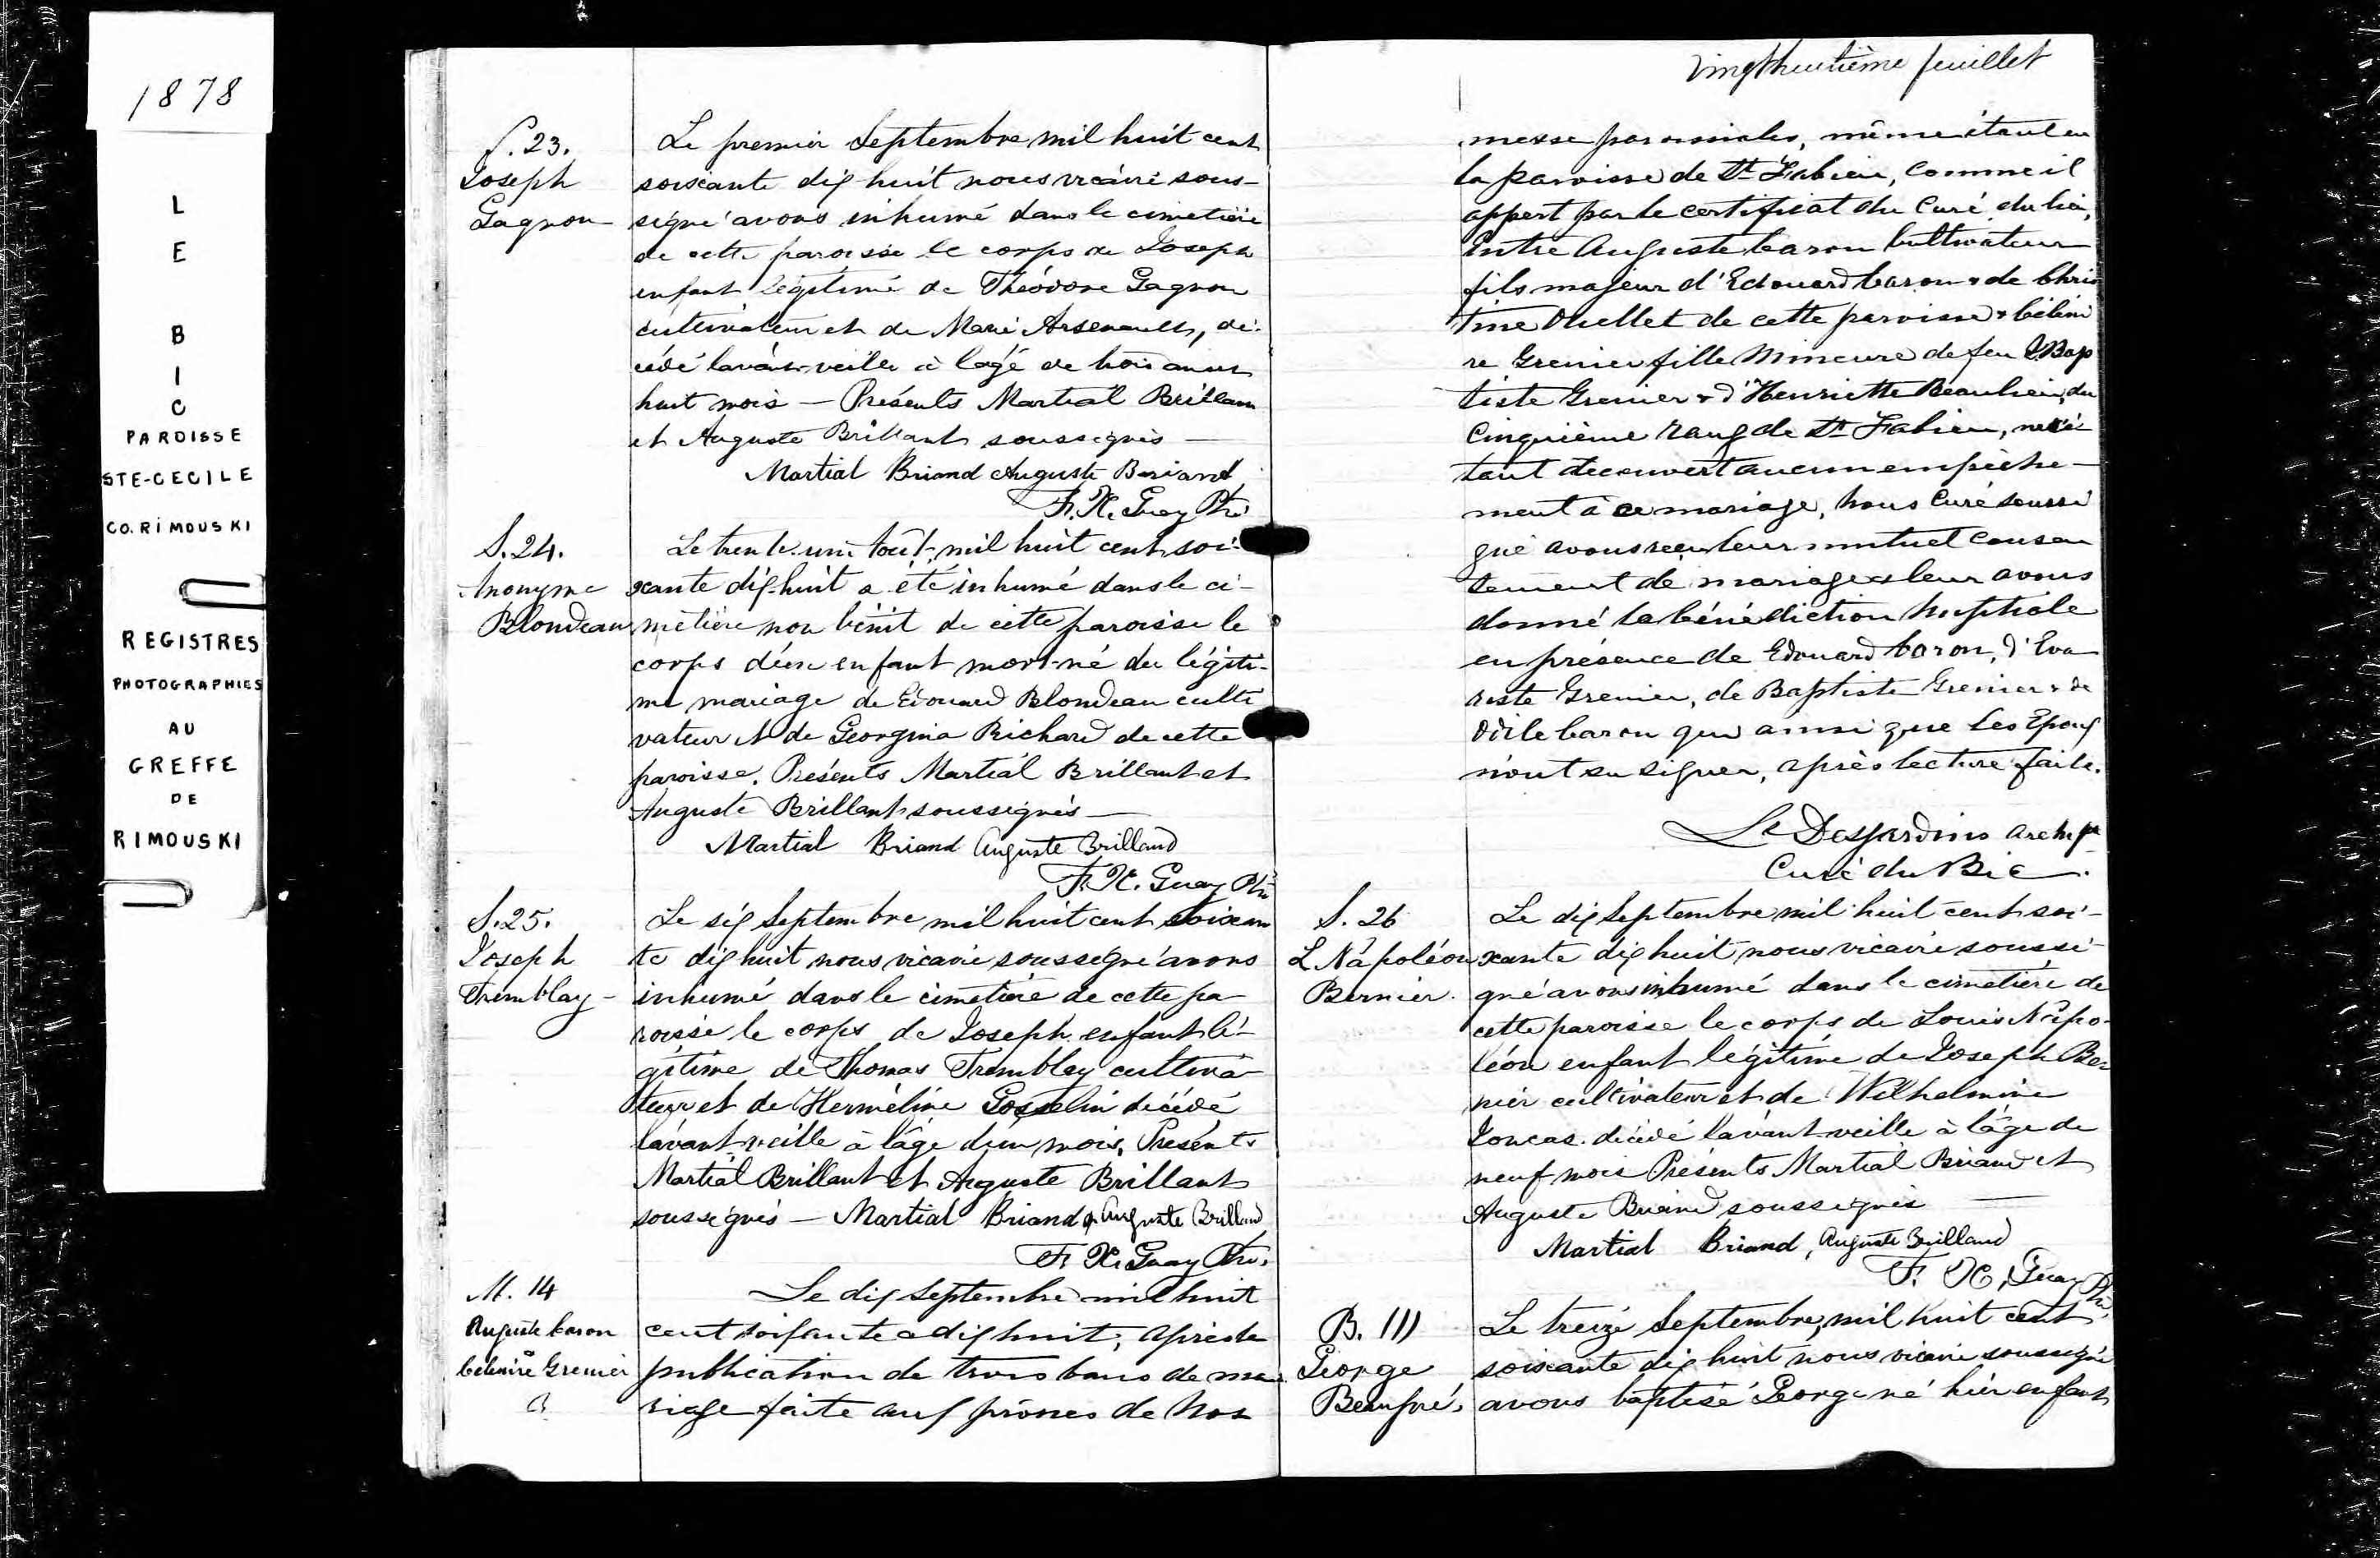 1878
L
E
B
I
C
PAROISSE
STE-CECILE
CO. RIMOUSKI
REGISTRES
PHOTOGRAPHIES
AU
GREFFE
DE
RIMOUSKI
S. 23.
Joseph
Gagnon
Le premier Septembre mil huit cent
soixante dix huit nous vicaire sous-
signé avons inhumé dans le cimetière
de cette paroisse le corps de Joseph
enfant légitime de Théodore Gagnon
cultivateur et de Marie Arsenault, dé-
cédé lavant-veille à lâgé de trois ans et
huit mois — Présents Martial Brillant
et Auguste Brillant soussignés —
Martial Briand Auguste Briand
F. X. Guay Ptre
S. 24.
Anonyme
Blondeau
Le trente-un Août mil huit cent soi-
xante dix-huit a été inhumé dans le ci-
metière non bénit de cette paroisse le
corps d'un enfant mort-né du légiti-
me mariage de Edouard Blondeau culti
vateur et de Georgina Richard de cette
paroisse. Présents Martial Brillant et
Auguste Brillant soussignés —
Martial Briand Auguste Brilland
F. X. Guay Ptre
S. 25.
Joseph
Tremblay -
Le six Septembre mil huit cent soixan
te dix huit nous vicaire soussigné avons
inhumé dans le cimetière de cette pa
roisse le corps de Joseph enfant lé-
gitime de Thomas Tremblay cultiva-
teur et de Herméline Gosselin décédé
lavant veille à lâge d'un mois. Présents
Martial Brillant et Auguste Brillant
soussignés — Martial Briand & Auguste Brilland
F. X. Guay Ptre.
M. 14
Auguste Caron
Célenire Grenier
Le dix Septembre mil huit
cent soixante & dix huit, après la
publication de trois bans de ma
riage faite aux prônes de nos
Vingthuitième feuillet
messe paroissiales, même étant en
la paroisse de St Fabien, comme il
appert par le certificat du Curé du lieu,
Entre Auguste Caron Cultivateur
fils majeur d'Edouard Caron & de Chris
tine Ouellet de cette paroisse & Céleni
re Grenier fille Mineure de feu J. Bap
tiste Grenier & d'Henriette Beaulieu, du
Cinquième rang de St Fabien, ne s'é
tant découvert aucun empêche-
ment à ce mariage, Nous Curé soussi
gné avons reçu leur mutuel consen
tement de mariage & leur avons
donné la bénédiction Nuptiale
en présence de Edouard Caron, d'Eva
riste Grenier, de Baptiste Grenier & de
Odile Caron qui ainsi que les Epoux
n'ont su signer, après lecture faite.
Ls Desjardins archptre
Curé du Bic.
S. 26
L Napoléon
Bernier.
Le dix Septembre mil huit cent soi-
xante dix huit nous vicaire soussi-
gné avons inhumé dans le cimetière de
cette paroisse le corps de Louis Napo-
léon enfant légitime de Joseph Ber
nier cultivateur et de Wilhelmine
Joncas. décédé lavant-veille à lâge de
neuf mois Présents Martial Briand et
Auguste Briand soussignés —
Martial Briand, Auguste Brilland
F. X. Guay Ptre.
B. 111
George
Beaupré,
Le treize Septembre, mil huit cent
soixante dix huit nous vicaire soussigné
avons baptisé George né hier enfant